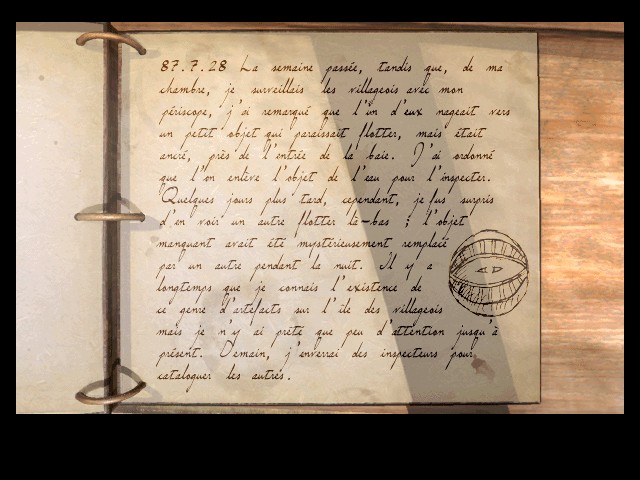 87.7.28 La semaine passée, tandis que, de ma
chambre, je surveillais les villageois avec mon
périscope, j'ai remarqué que l'un d'eux nageait vers
un petit objet qui paraissait flotter, mais était
ancré, près de l'entrée de la baie. J'ai ordonné
que l'on enlève l'objet de l'eau pour l'inspecter.
Quelques jours plus tard, cependant, je fus surpris
d'en voir un autre flotter là-bas ; l'objet
manquant avait été mystérieusement remplacé
par un autre pendant la nuit. Il y a
longtemps que je connais l'existence de
ce genre d'artefacts sur l'île des villageois
mais je n'y ai prêté que peu d'attention jusqu'à
présent. Demain, j'enverrai des inspecteurs pour
cataloguer les autres.